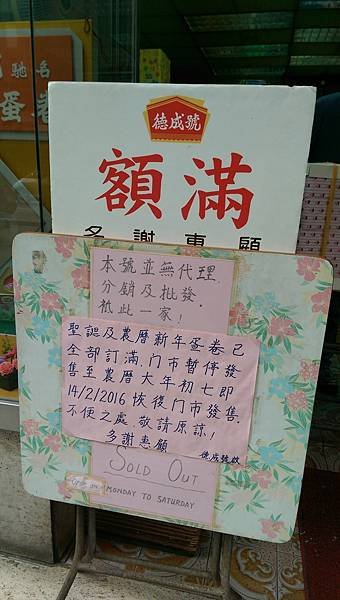 馳名
蛋卷
德成號
額滿
多謝惠顧
本號並無代理,
分銷及批發,
祇此一家!
聖誕及農曆新年蛋卷已
全部訂滿,門市暫停發
售至農曆大年初七即
14/2/2016 恢復門市發售,
不便之處,敬請原諒!
多謝惠顧
德成號啟
SOLD OUT
MONDAY TO SATURDAY